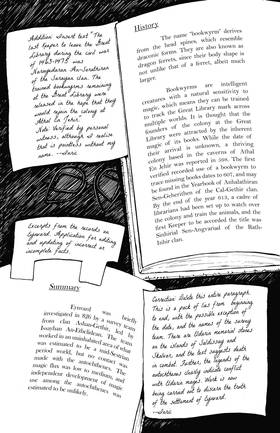 Addition: Insert text "The
last keeper to leave the Great
Library during the civil war
of 963-975 was
of the Sarayan clan. The
trained bookwyrms remaining
at the Great Library were
released in the hope that they
would rejoin the colony at
Athal En Jehir."
Not Verified by personal
witness, although I realise
that is pointless without my
name. —Jarc
History
The name "bookwyrm" derives
from the head spines, which resemble
draconic forms. They are also known as
dragon ferrets, since their body shape is
not unlike that of a ferret, albeit much
larger.
Bookwyrms are intelligent
creatures with a natural sensitivity to
magic, which means they can be trained
to track the Great Library mark across
multiple worlds. It is thought that the
founders of the colony at the Great
Library were attracted by the inherent
magic of its books. While the date of
their arrival is unknown, a thriving
colony based in the caverns of Athal
En Jehir was reported in 598. The first
verified recorded use of a bookwyrm to
trace missing books dates to 607, and may
be found in the Yearbook of
of the Cal-Gethir clan.
By the end of the year 613, a cadre of
librarians had been set up to watch over
the colony and train the animals, and the
first Keeper to be accorded the title was
Sen-Angvarial of the Rath-
clan.
Excerpts from the records on
Eyward. Application for adding
and updating of incorrect or
incomplete facts.
Summary
Eyward was briefly
investigated in 826 by a survey team
from clan Ashan-Gethir, led by
The team
worked in an uninhabited area of what
was estimated to be a mid-Sestran
period world, but no contact was
made with the autochthones. The
magic flux was low to medium, and
independent development of magic
use among the autochthones was
estimated to be unlikely.
Correction: Delete this entire paragraph.
This is a pack of lies from beginning
to end, with the possible exception of
the date, and the names of the survey
team. There are Udara memorial stones
on the islands of
and the text suggests death
in combat. Further, the legends of the
autochthones clearly indicate conflict
with Udara mages. Work is now
being carried out to discern the truth
of the settlement of Eyward.
—Jarc